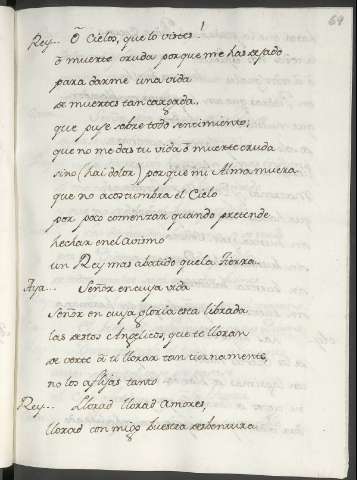 69
Rey... Ô Cielos, que lo visteis!
ô muerte cruda porque me has dejado
para darme una vida
de muertes tan cargada,
que puse sobre todo sentimiento;
que no me das tu vida ô muerte cruda
sino (hai dolor) porque mi Alma muera
que no acostumbra el Cielo
por poco comenzar quando pretende
hechar en el avismo
un Rey mas abatido que la Tierra.
Aya... Señor en cuya vida
Señor en cuya gloria esta librada
las de estos Angelicos, que te lloran
de verte â ti llorar tan tiernamente,
no los aflijas tanto
Rey... Llorad llorad Amores,
llorad con migo vuestra desventura